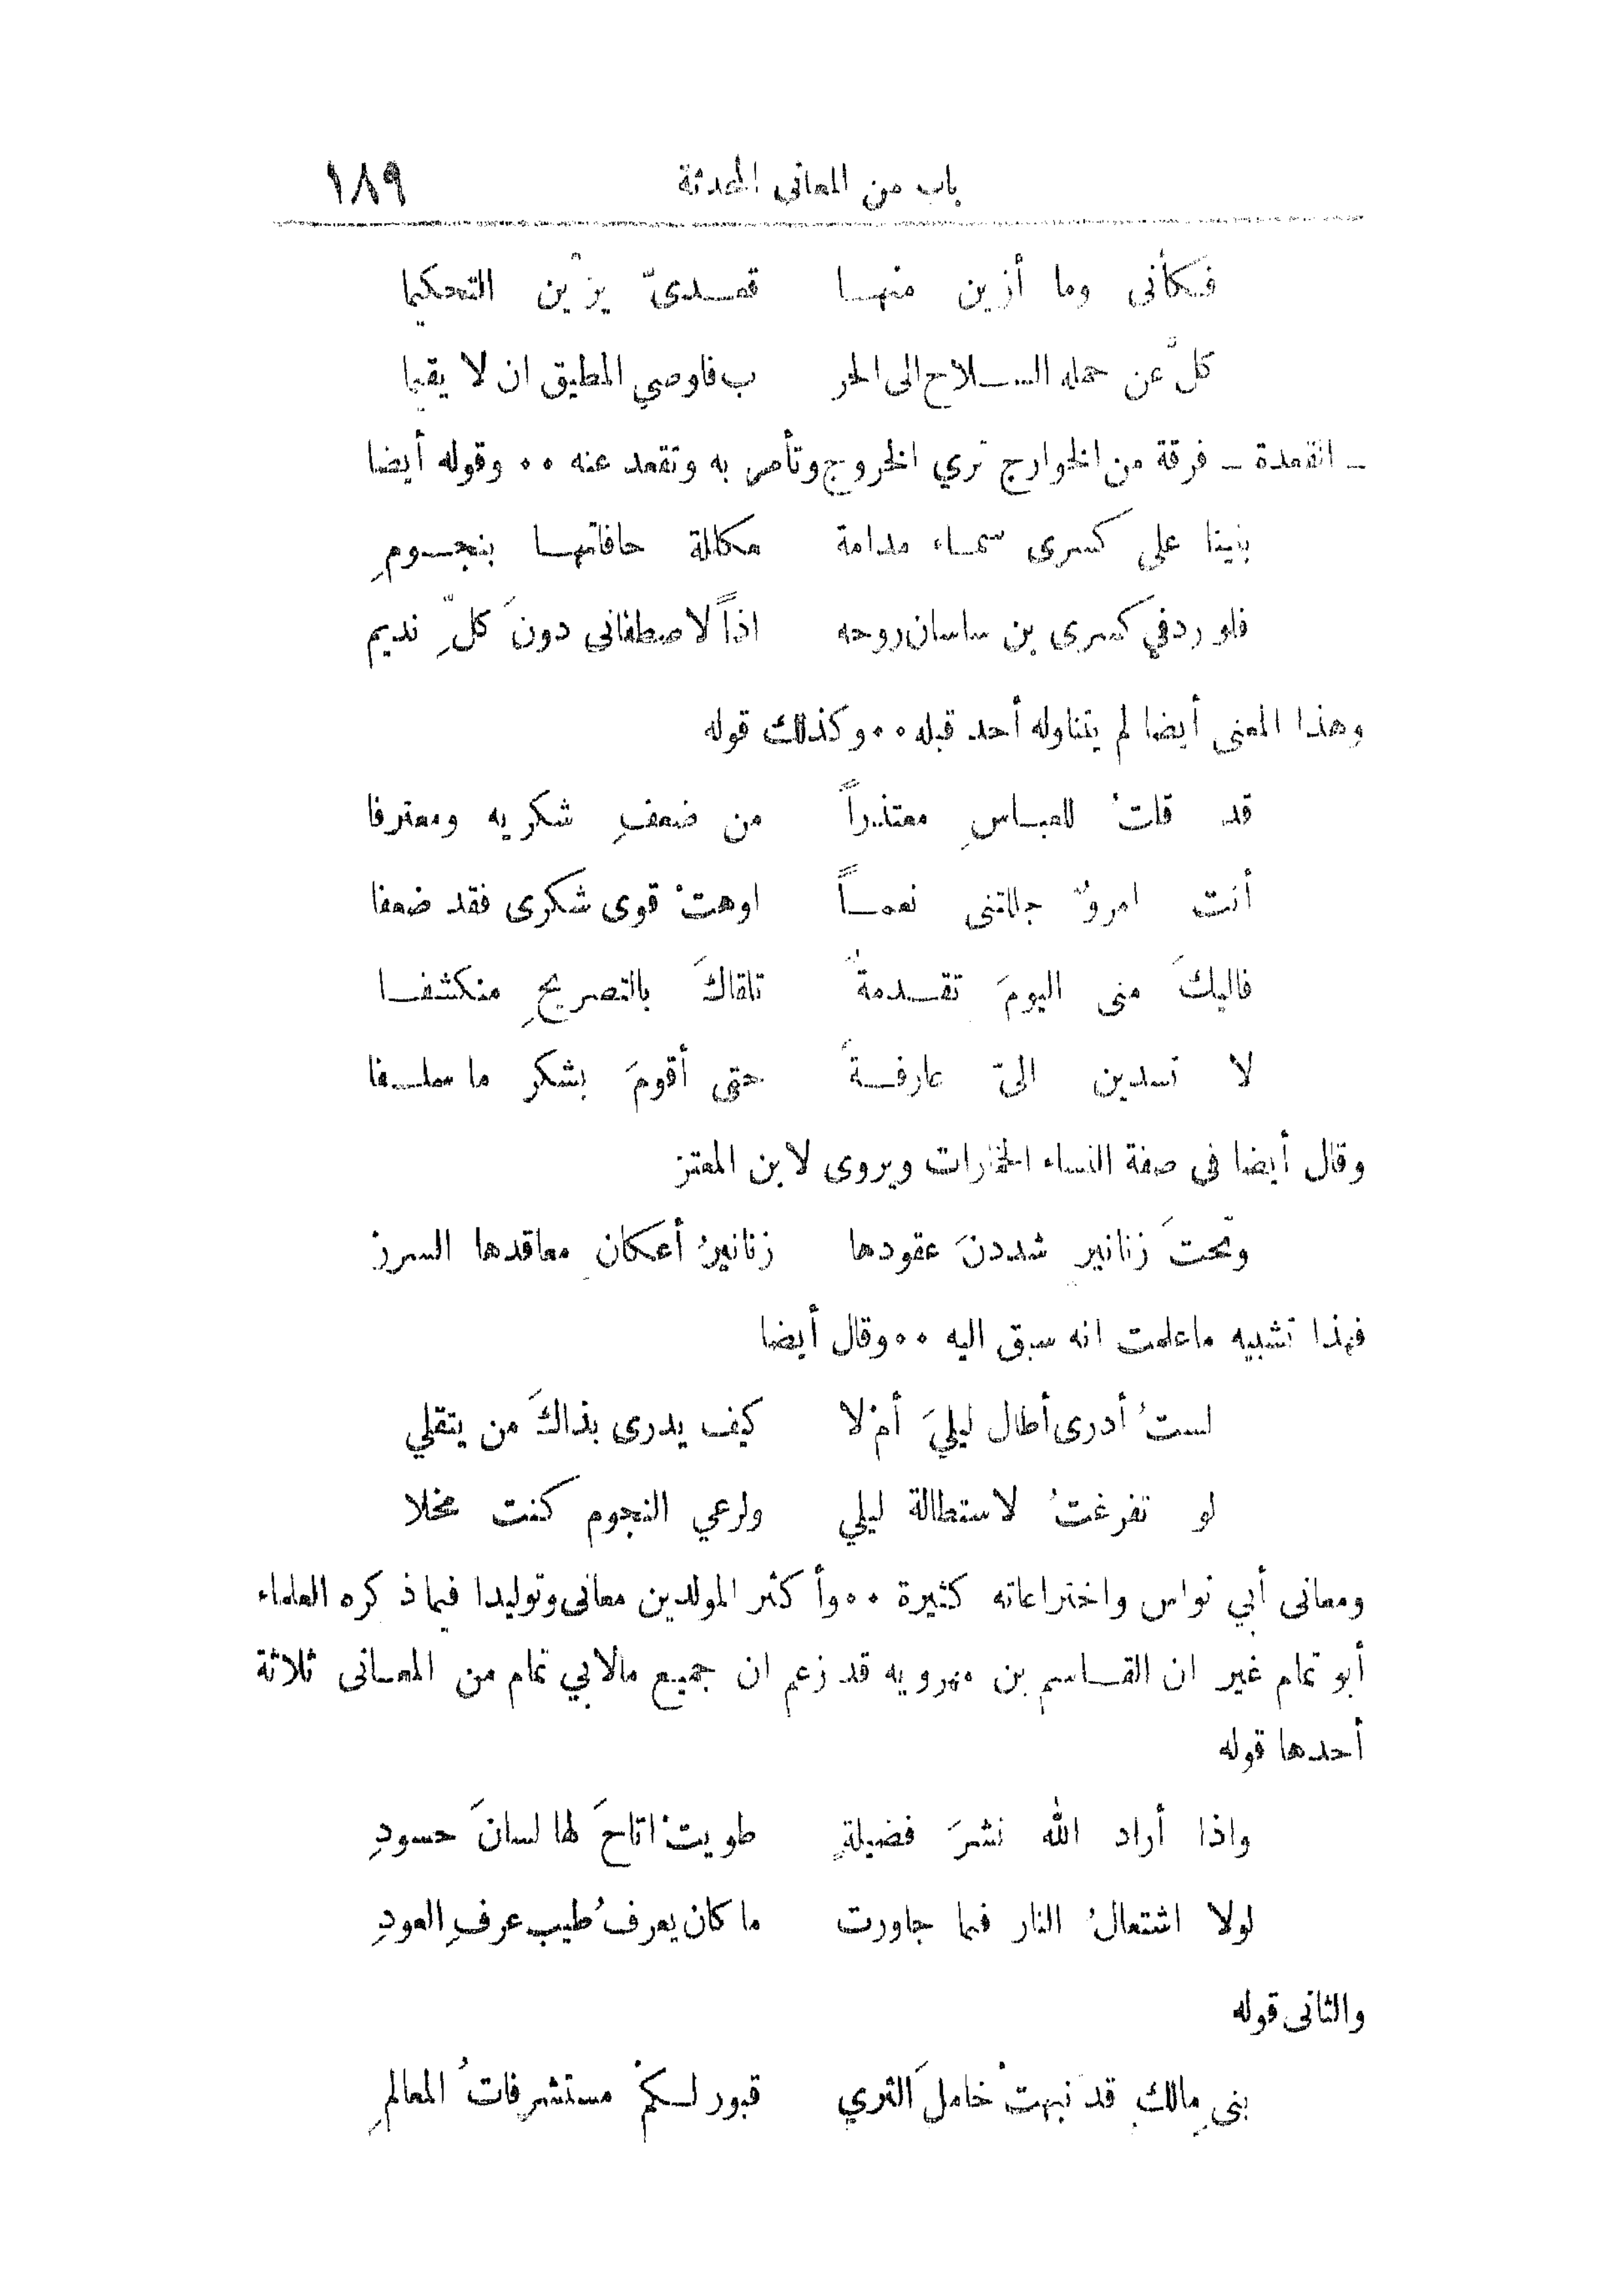 باب من المعانى المحدثة ١٨٩
فكأنى وما أزين منها قعدىّ يزْين التحكيما
كلّ عن حمله السلاح الى الحر ب فاوصي المطيق ان لا يقيما
ـ القعدة ـ فرقة من الخوارج تري الخروج وتأمر به وتقعد عنه ٠٠ وقوله أيضا
بنينا على كسرى سماء مدامة مكللة حافاتها بنجومِ
فلو رد في كسرى بن ساسان روحه اذاً لاصطفانى دونَ كلِّ نديم
وهذا المعنى أيضا لم يتناوله أحد قبله ٠٠ وكذلك قوله
قد قلتُ للعباسِ معتذراً من ضعفِ شكريه ومعترفا
أنت امروٌ جللتنى نعماً اوهتْ قوى شكرى فقد ضعفا
فاليكَ منى اليومَ تقدمةً تلقاكَ بالتصريحِ منكشفا
لا تسدين الىّ عارفةً حتى أقومَ بشكر ما سلفا
وقال أيضا فى صفة النساء الخمارات ويروى لابن المعتز
وتحتَ زنانير شددنَ عقودها زنانيرُ أعكانِ معاقدها السررْ
فهذا تشبيه ماعلمت انه سبق اليه ٠٠ وقال أيضا
لستُ أدرى أطال ليليَ أمْ لا كيف يدرى بذاكَ من يتقلي
لو تفرغتُ لاستطالة ليلي ولرعي النجوم كنت مخلا
ومعانى أبي نواس واختراعاته كثيرة ٠٠ وأكثر المولدين معانى وتوليدا فيما ذكره العلماء
أبو تمام غير ان القاسم بن مهرويه قد زعم ان جميع مالأبي تمام من المعانى ثلاثة
أحدها قوله
واذا أراد الله نشرَ فضيلةٍ طويتْ اتاحَ لها لسانَ حسودِ
لولا اشتعالُ النار فيما جاورت ما كان يعرفُ طيب عرفِ العودِ
والثانى قوله
بنى مالكِ قد نبهتْ خاملَ الثري قبور لكمْ مستشرفاتُ المعالمِ